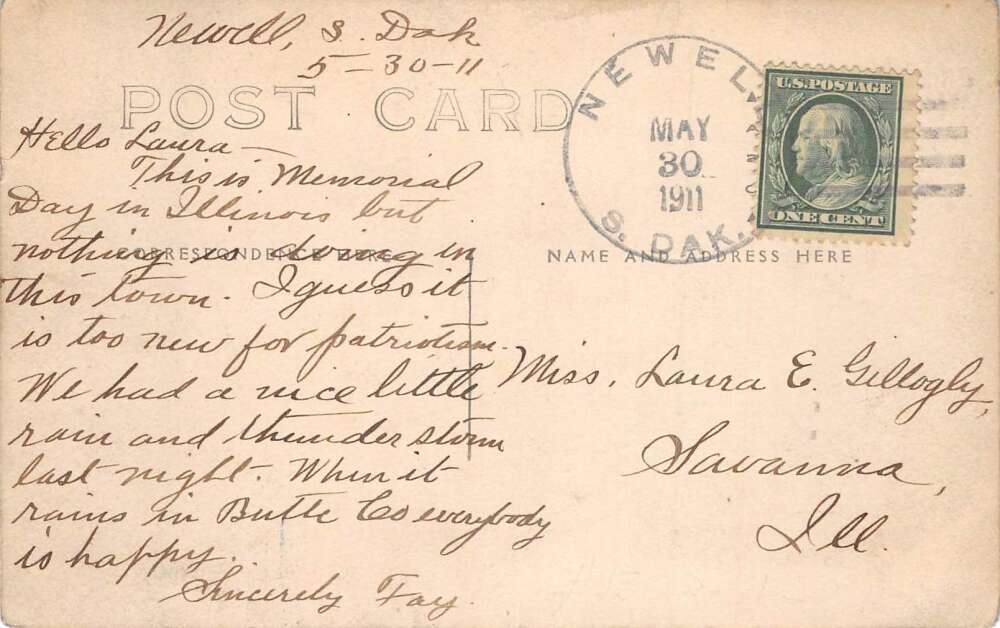 Newell, S. Dak
5-30-11
POST CARD
Hello Laura —
This is Memorial
Day in Illinois but
nothing is doing in
this town. I guess it
is too new for patriotism.
We had a nice little
rain and thunder storm
last night. When it
rains in Butte Co everybody
is happy.
Sincerely Fay.
CORRESPONDENCE HERE
NEWELL
MAY
30
1911
S. DAK.
U.S. POSTAGE
ONE CENT
NAME AND ADDRESS HERE
Miss. Laura E. Gillogly,
Savanna,
Ill.